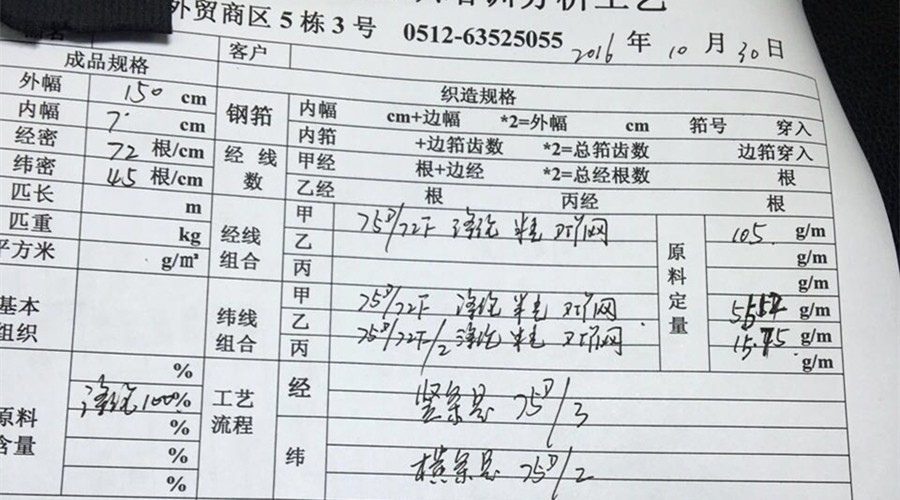 外贸商区5栋3号 0512-63525055 2016年10月30日
成品规格 客户
外幅 150 cm 织造规格
内幅 cm 钢筘 内幅 cm+边幅 *2=外幅 cm 筘号 穿入
经密 72 根/cm 内筘 +边筘齿数 *2=总筘齿数 边筘穿入
纬密 45 根/cm 经线数 甲经 根+边经 *2=总经根数 根
匹长 m 乙经 根 丙经 根
匹重 kg 经线组合 甲 75D/72F 涤纶 原料定量 105 g/m
平方米 g/m² 乙 g/m
丙 g/m
基本组织 纬线组合 甲 75D/72F 涤纶 g/m
乙 75D/72F/2 涤纶 g/m
丙 g/m
原料含量 % 工艺流程 经 竖条是 75D/3
涤纶100%
%
% 纬 横条是 75D/2
%